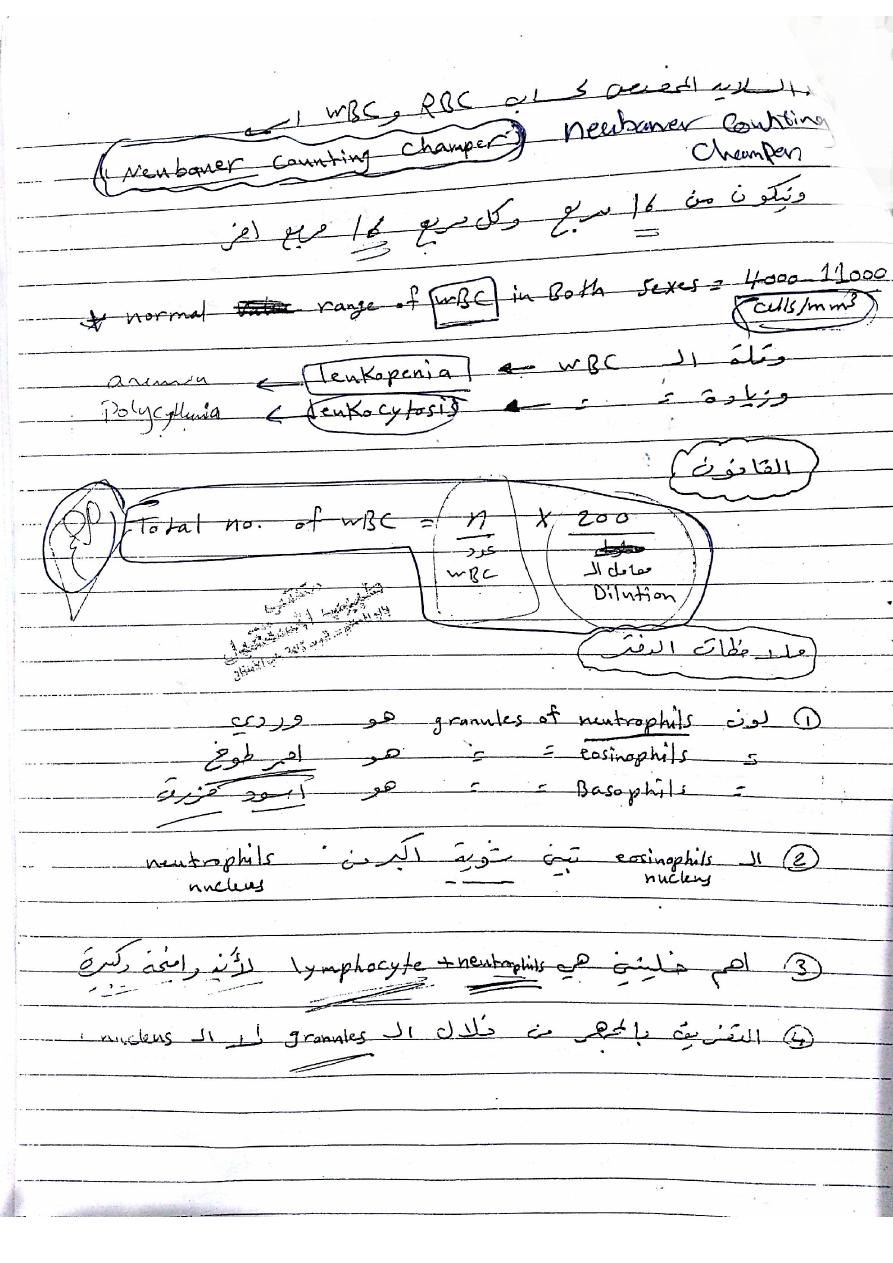 السلايد المخصص لحساب RBC و WBC اسمه
Neubaner Counting Champer Neubaner Counting Champer
ويتكون من 16 مربع وكل مربع 16 مربع اخر
* normal range of WBC in Both Sexes = 4000-11000
cells/mm³
وقلة الـ WBC ← leukopenia ← anemia
وزيادة = = ← leukocytosis ← Polycythemia
القانون
Total no. of WBC = n × 200
عدد WBC
معامل الـ Dilution
ملاحظات الدفتر
① لون granules of neutrophils هو وردي
= eosinophils = = هو احمر طوخ
= Basophils = = هو أسود
② الـ eosinophils nucleus تبين شوية اكبر من neutrophils nucleus
③ اهم خليتين هي lymphocyte + neutrophils لأنه واضحة وكبيرة
④ التفريق بالمجهر من خلال الـ granules لا الـ nucleus